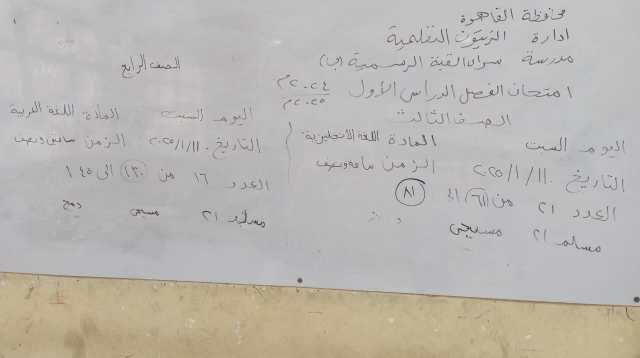 محافظة القاهرة
ادارة الزيتون التعليمية
مدرسة سراى القبة الرسمية (ب)
امتحان الفصل الدراسى الأول ٢٠٢٤م
٢٠٢٥م
الصف الثالث
اليوم السبت المادة اللغة الانجليزية
التاريخ ٢٠٢٥/١/١١ الزمن ساعة ونصف
العدد ٢١ من (٦١) الى ٨١
مسلم ٢١ مسيحى
الصف الرابع
اليوم السبت المادة اللغة العربية
التاريخ ٢٠٢٥/١/١١ الزمن ونصف
العدد ١٦ من الى ١٤٥
٢١ مسيحى دمج